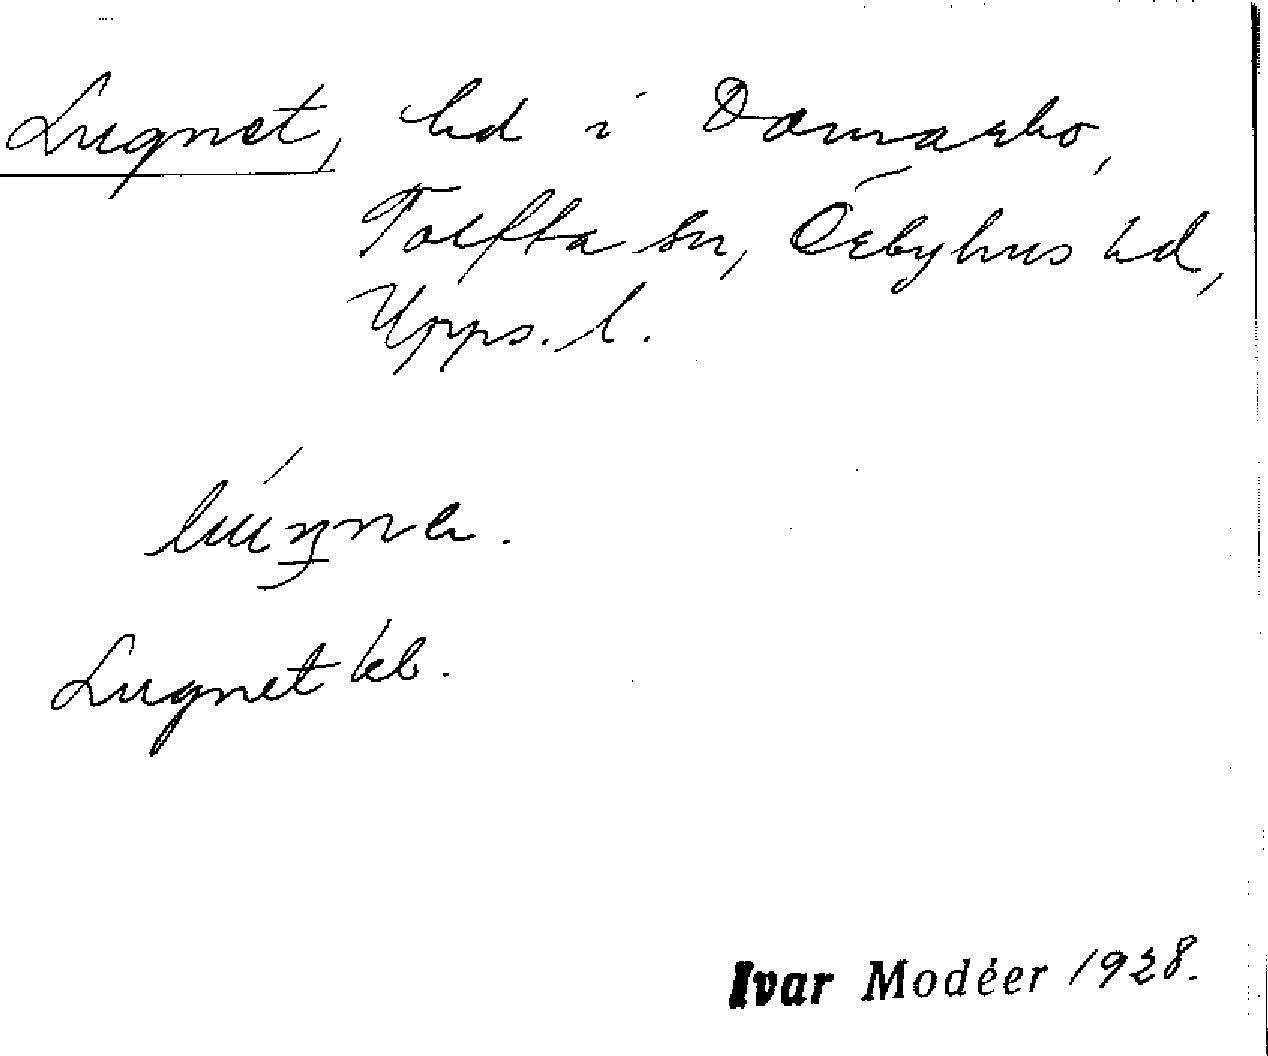 Lugnet, hd i Damarbo,
Tolfta sn, Örbyhus hd,
Upps. l.
Lugnet kb.
Ivar Modéer 1928.